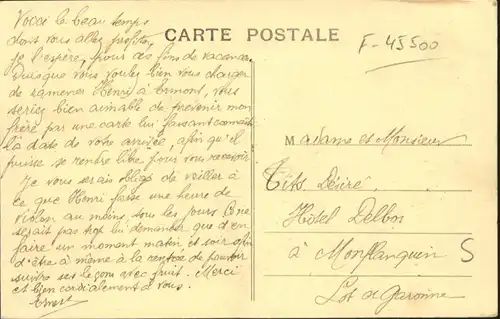 CARTE POSTALE
F-45500
Voici le beau temps
dont vous allez profiter,
je l'espère, pour ces fins de vacances.
Puisque vous voulez bien vous charger
de ramener Henri à Ermont, vous
seriez bien aimable de prévenir mon
frère par une carte lui faisant connaître
la date de votre arrivée, afin qu'il
puisse se rendre libre pour vous recevoir.
Je vous serais obligé de veiller à
ce que Henri fasse une heure de
violon au moins, tous les jours. Ce ne
serait pas trop lui demander que d'en
faire un moment matin et soir afin
d'être à même à la rentrée de pouvoir
suivre ses leçons avec fruit. Merci
et bien cordialement à vous.
Ernest
Madame et Monsieur
Tits Désiré
Hôtel Delbos
à Monflanquin
Lot et Garonne
S